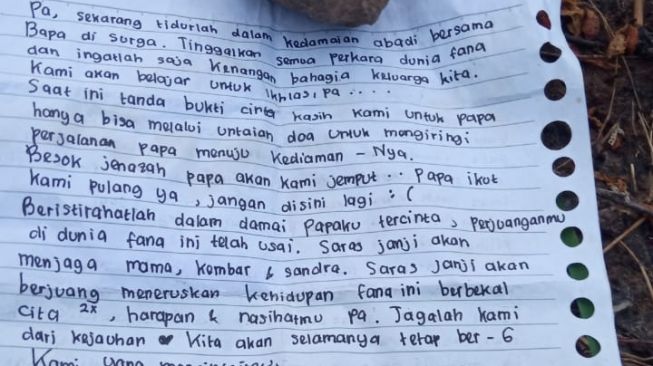 Pa, sekarang tidurlah dalam kedamaian abadi bersama
Bapa di surga. Tinggalkan semua perkara dunia fana
dan ingatlah saja kenangan bahagia keluarga kita.
Kami akan belajar untuk ikhlas, pa ....
Saat ini tanda bukti cinta kasih kami untuk papa
hanya bisa melalui untaian doa untuk mengiringi
perjalanan papa menuju kediaman-Nya.
Besok jenazah papa akan kami jemput .. papa ikut
kami pulang ya, jangan disini lagi :(
Beristirahatlah dalam damai papaku tercinta, perjuanganmu
di dunia fana ini telah usai. Saras janji akan
menjaga mama, kembar & sandra. Saras janji akan
berjuang meneruskan kehidupan fana ini berbekal
cita 2x, harapan & nasihatmu pa. Jagalah kami
dari kejauhan kita akan selamanya tetap ber-6
Kami yang